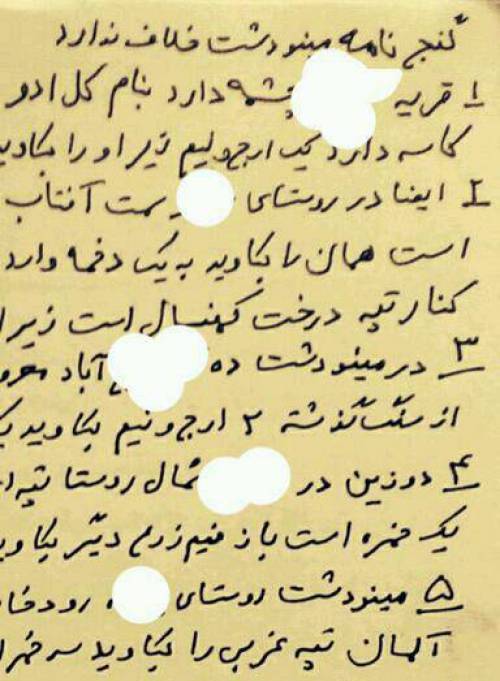 گنج نامه مینودشت خلاف ندارد
۱ قریه چشمه دارد بنام کل ادو
کاسه دارد یک ارج ونیم زیر او را بکاوید
۲ ایضا در روستای سمت آفتاب
است همان را بکاوید به یک دخمه وارد
کنار تپه درخت کهنسال است زیر
۳ در مینودشت ده آباد معرو
از سنگ گذشته ۲ ارج ونیم بکاوید یک
۴ دوزین در شمال روستا تپه
یک خمره است باز نیم زرع دیگر بکاوید
۵ مینودشت روستای رودخا
آلمان تپه غربی را بکاوید سه خمر